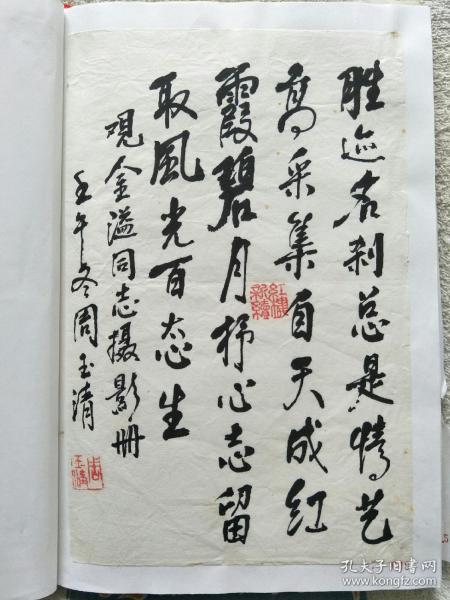 胜迹名刹总是情艺
高采集自天成红
霞碧月抒心志留
取风光百态生
观金溢同志摄影册
壬午冬周玉清
紅樓
新續
周
玉清
孔夫子旧书网
www.kongfz.com